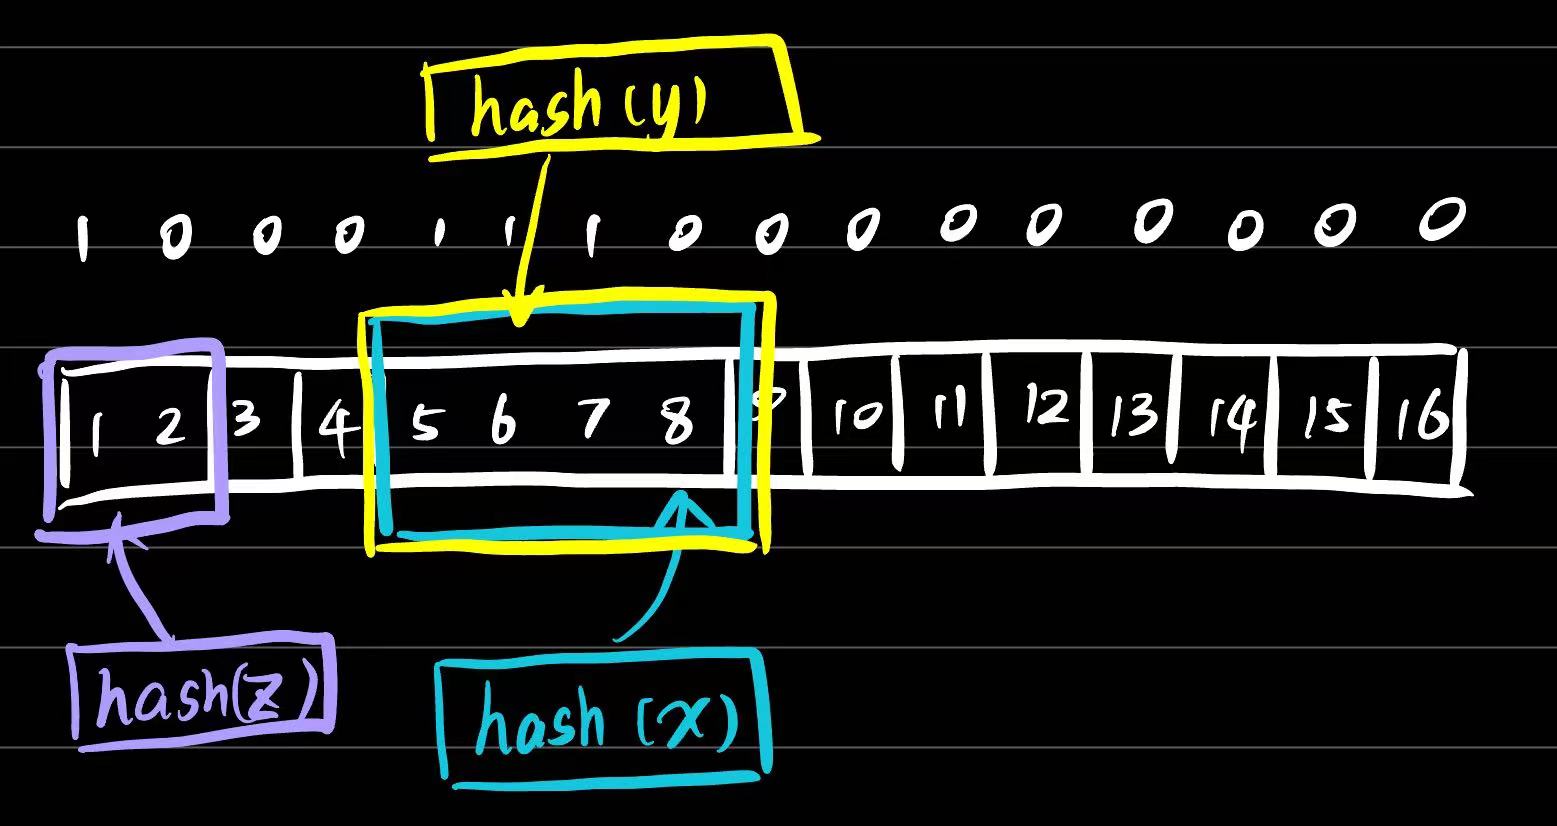 hash (y)
1 0 0 0 1 1 1 0 0 0 0 0 0 0 0 0
1 2 3 4 5 6 7 8 9 10 11 12 13 14 15 16
hash(z)
hash (x)